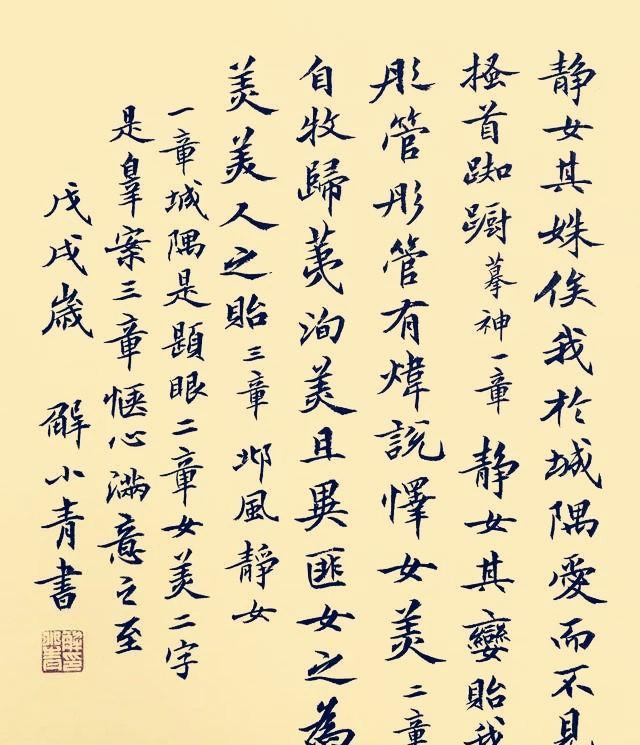 静女其姝俟我於城隅愛而不見
搔首踟蹰摹神一章静女其孌貽我
彤管彤管有煒說懌女美二章
自牧歸荑洵美且異匪女之為
美美人之貽三章邶風静女
一章城隅是題眼二章女美二字
是辠案三章愜心滿意之至
戊戌歲 解小青書